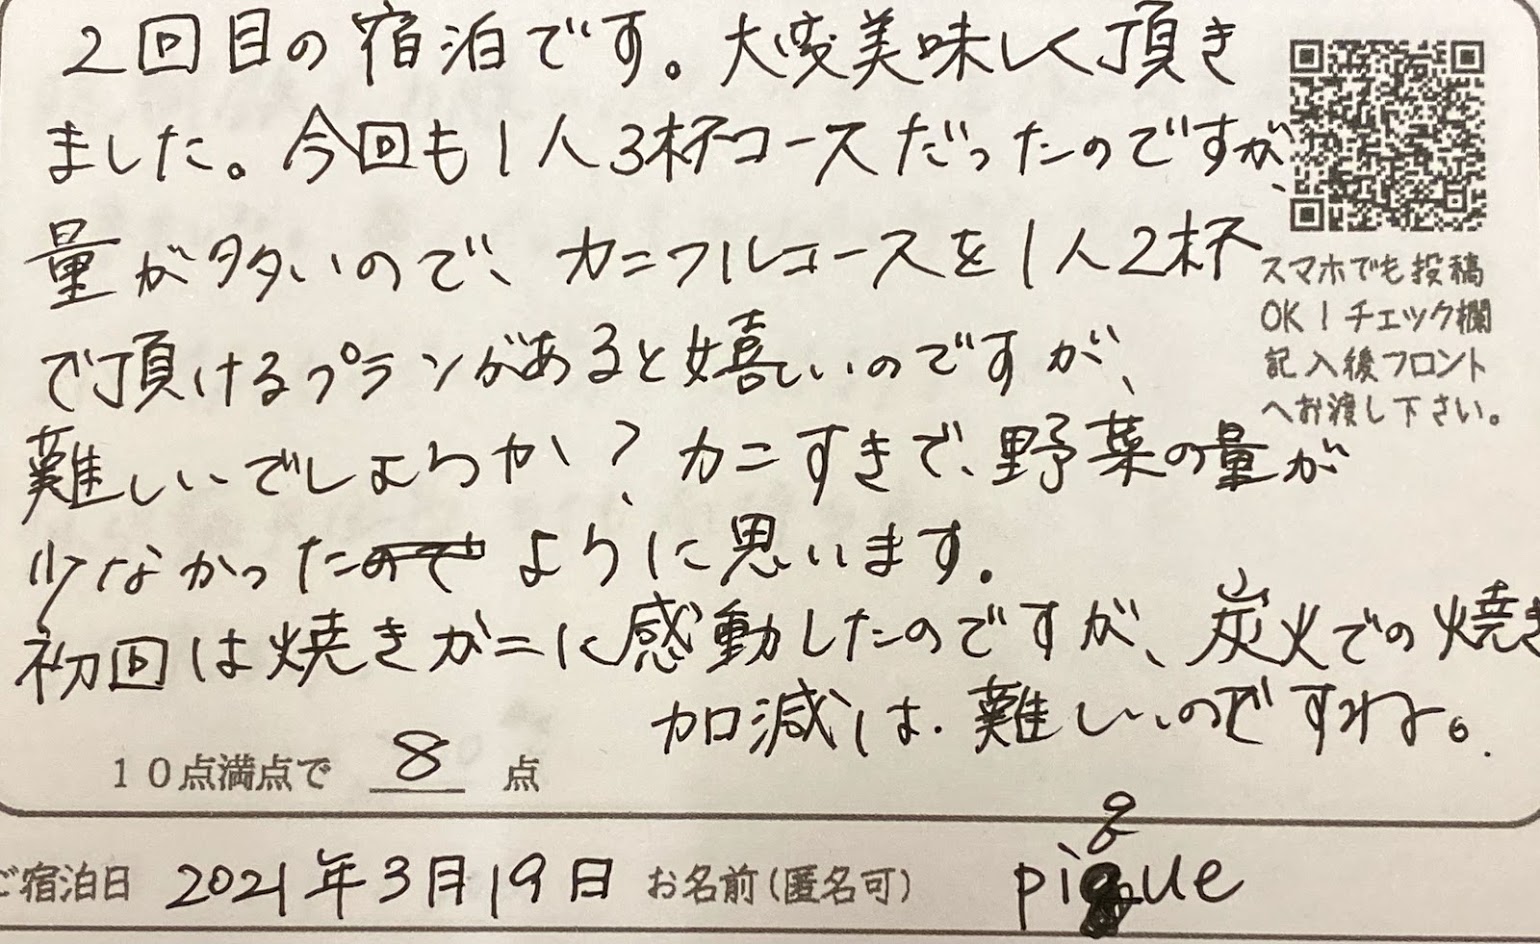 2回目の宿泊です。大変美味しく頂き
ました。今回も1人3杯コースだったのですが、
量が多いので、カニフルコースを1人2杯
で頂けるプランがあると嬉しいのですが、
難しいでしょうか？カニすきで、野菜の量が
少なかったように思います。
初回は焼きガニに感動したのですが、炭火での焼き
加減は、難しいのですね。
スマホでも投稿
OK！チェック欄
記入後フロント
へお渡し下さい。
10点満点で 8 点
ご宿泊日 2021年3月19日 お名前(匿名可) pique